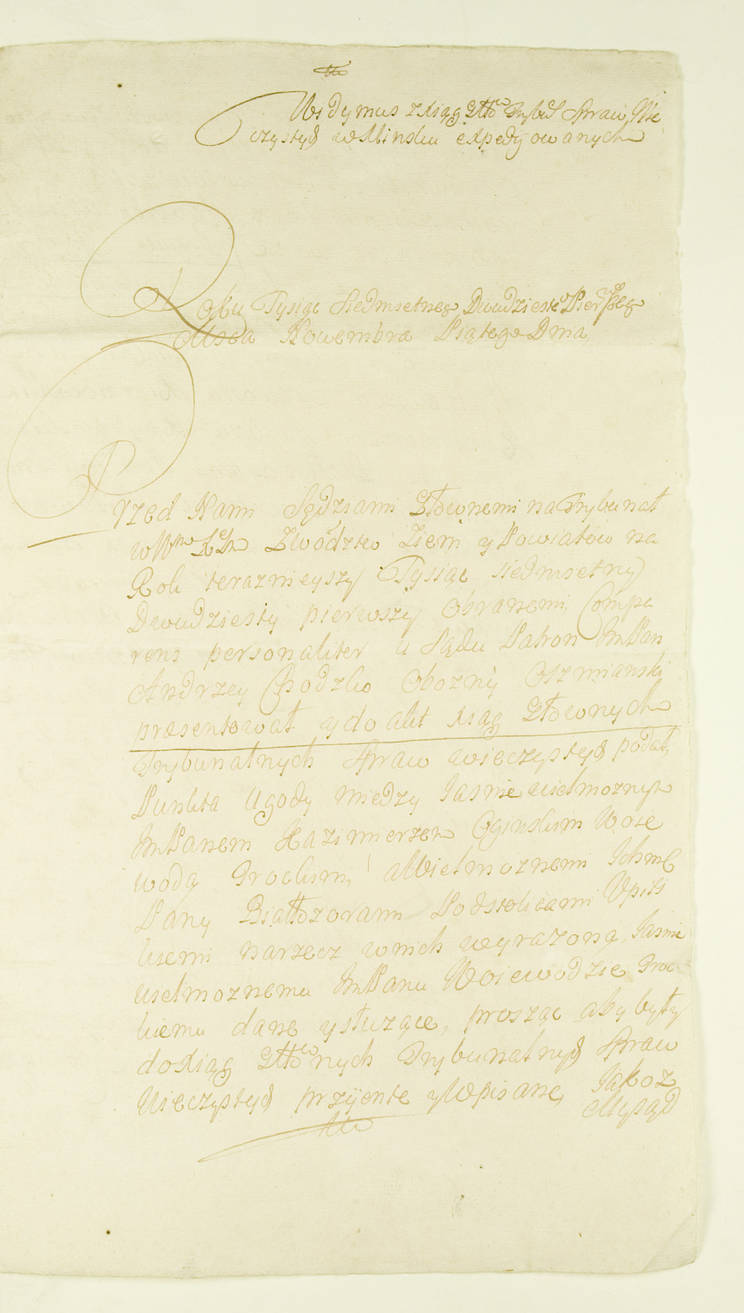 Widymus z Xiąg Głłch Trybul Spraw Wie
czystych w Minsku expedyowanych
Roku Tysiąc Siedmsetneg Dwudzieste Pierszeg
Msca Nowembra Piątego Dnia
Przed Nami Sędziami Głownemi na Trybunał
w Wm XLm Zwodztw Ziem y Powiatow na
Rok teraznieyszy Tysiąc siedmsetny
Dwudziesty pierwszy obranemi Compa
rens personaliter u Sądu Patron ImPan
Andrzey Chodzko Obozny Oszmianski
præsentował y do akt xiąg Głłownych
Trybunalnych Spraw wieczystych podał
Punkta Ugody między Jasnie wielmoznym
ImPanem Kazimierzem Oginskim Woie
wodą Trockim, a Wielmoznemi Ichmc
Pany Białłozorami Podstolicami Upits
kiemi na rzecz w nich wyrazoną Jasnie
wielmoznemu ImPanu Woiewodzie Troc
kiemu dane y słuzące, prosząc aby były
do Xiąg Głłownych Trybunalnych Spraw
Wieczystych przyięte y Wpisane, Jakoz
My Sąd